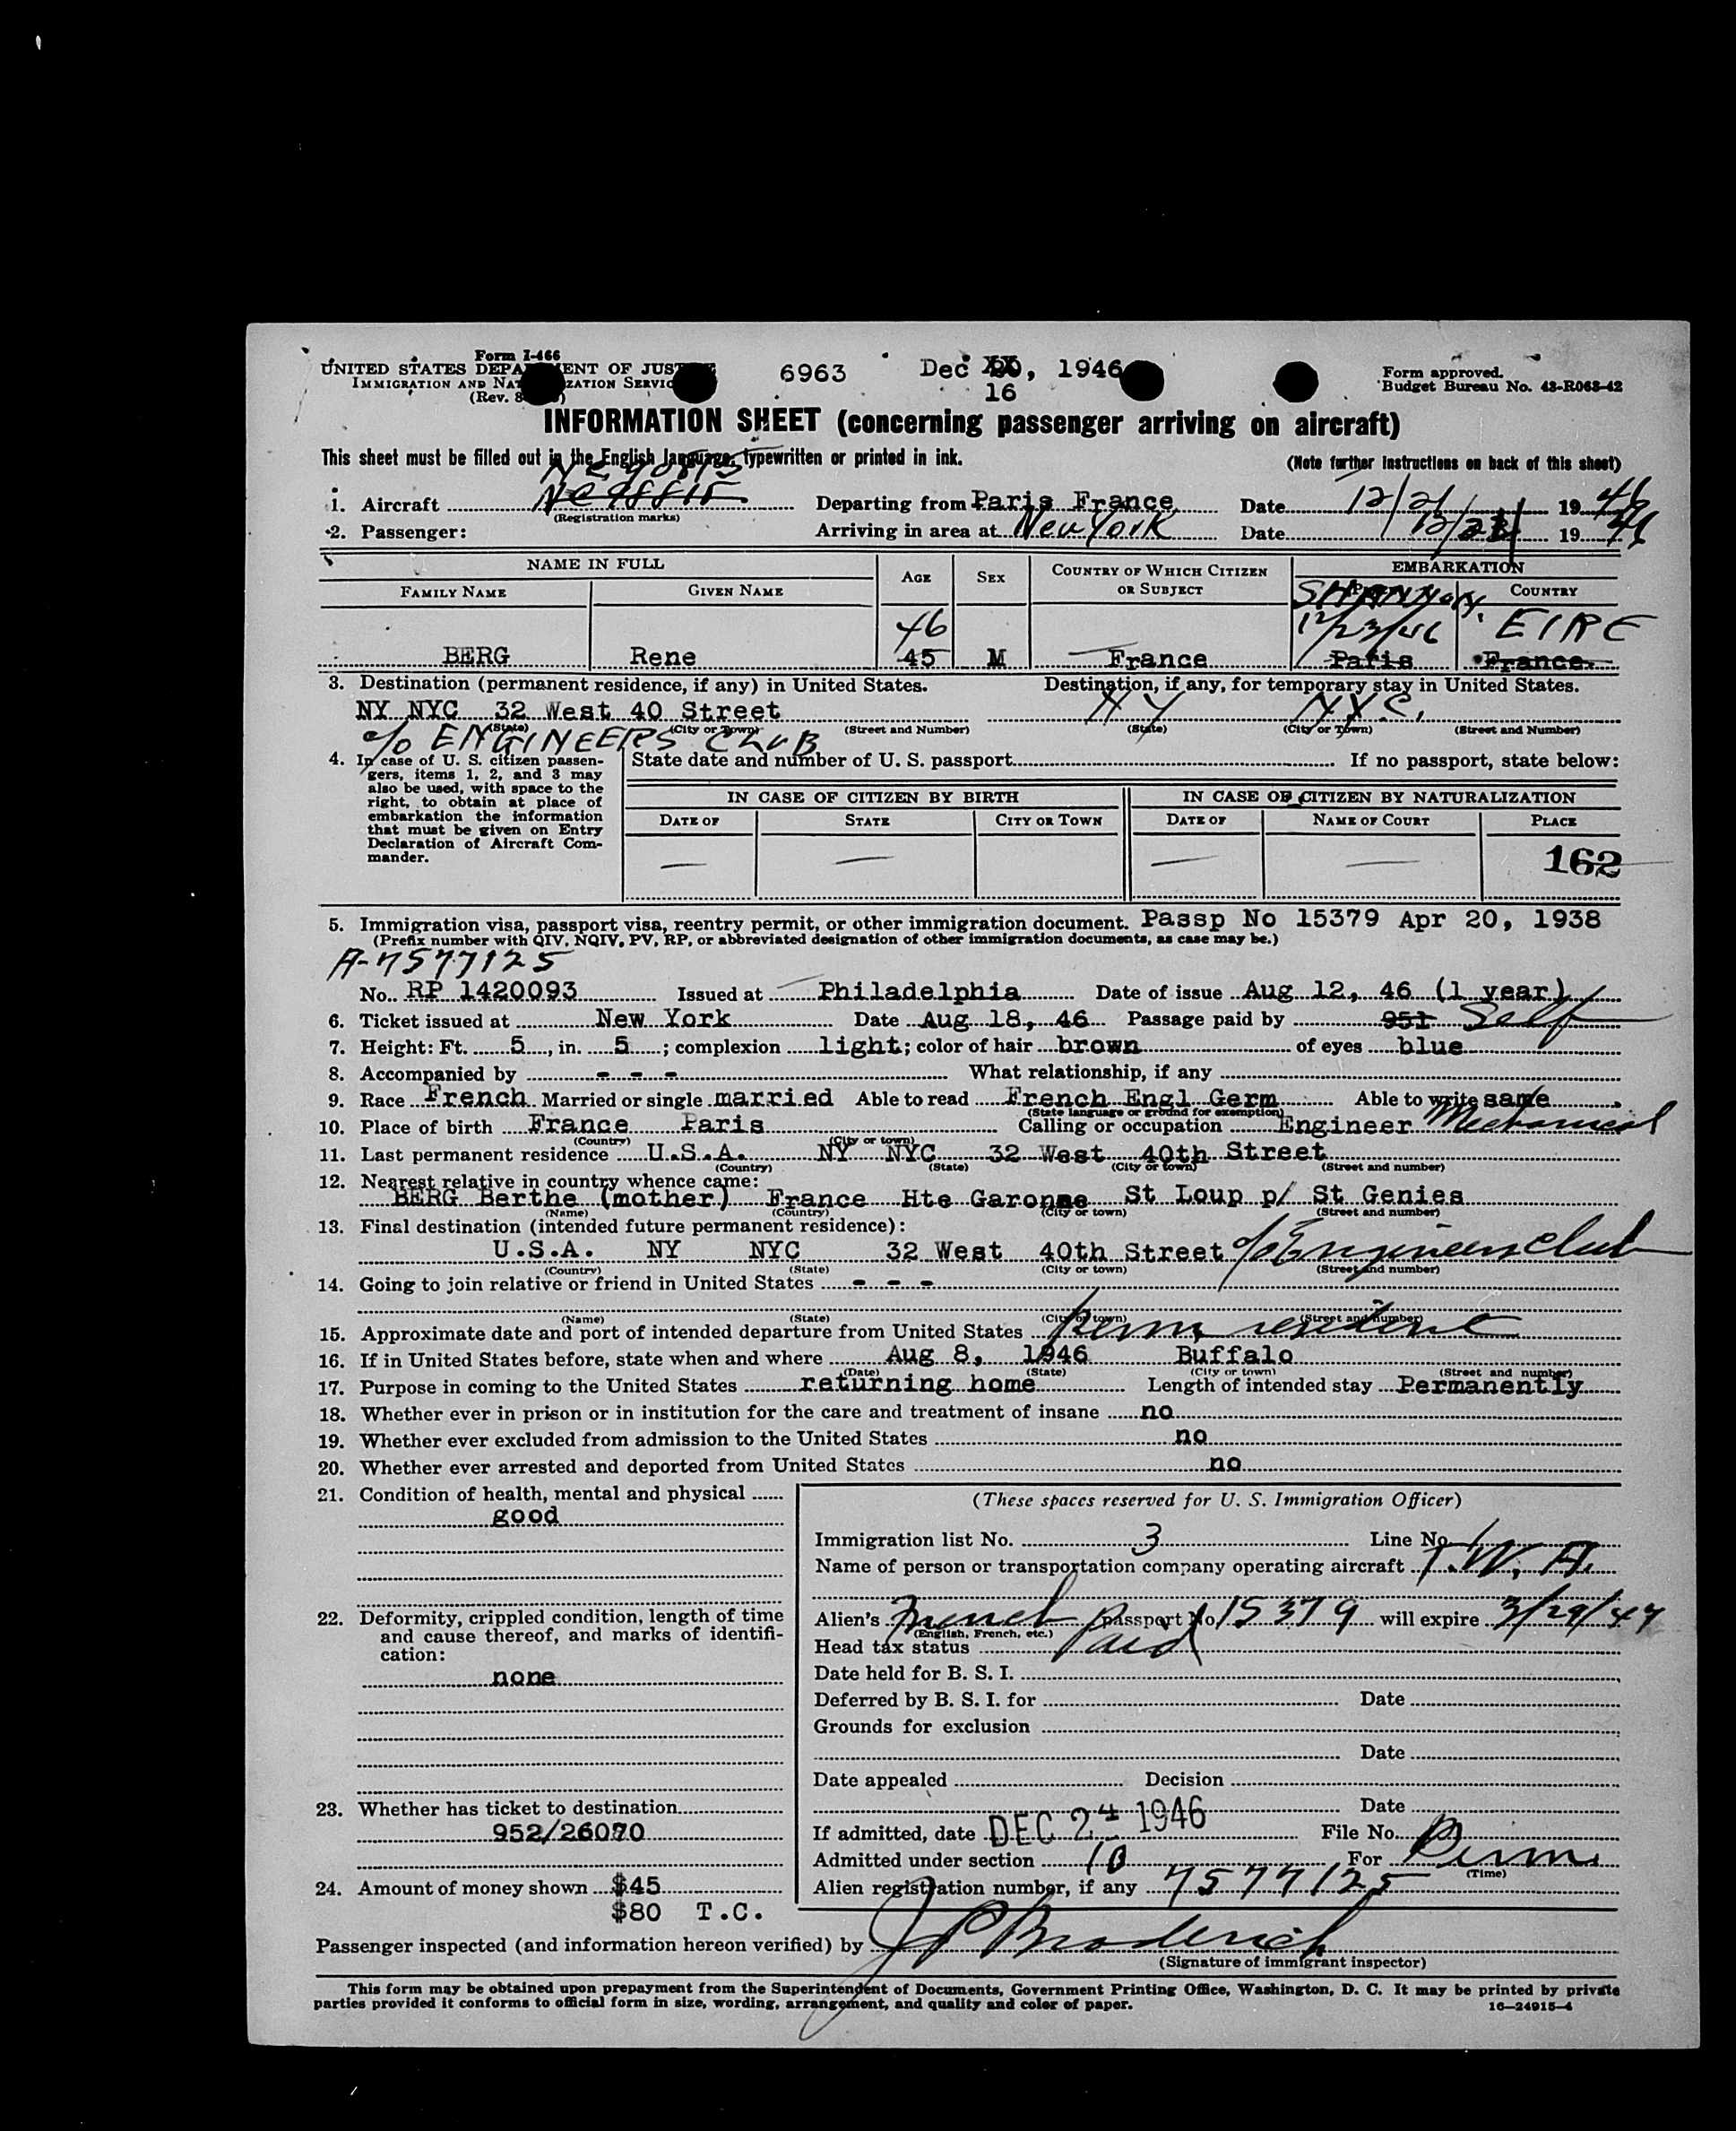 Form I-466
UNITED STATES DEPARTMENT OF JUSTICE 6963 Dec 20, 1946 Form approved.
IMMIGRATION AND NATURALIZATION SERVICE 16 Budget Bureau No. 43-R063-42
(Rev.
INFORMATION SHEET (concerning passenger arriving on aircraft)
This sheet must be filled out in the English language, typewritten or printed in ink. (Note further instructions on back of this sheet)
1. Aircraft Departing from Paris France Date 12/21 1946
(Registration marks)
2. Passenger: Arriving in area at New York Date 1946
NAME IN FULL AGE SEX COUNTRY OF WHICH CITIZEN OR SUBJECT EMBARKATION
FAMILY NAME GIVEN NAME SHANNON, COUNTRY
46 12/23/46 EIRE
BERG Rene 45 M France Paris France
3. Destination (permanent residence, if any) in United States. Destination, if any, for temporary stay in United States.
NY NYC 32 West 40 Street NY NYC.
(State) (City or Town) (Street and Number) (State) (City or Town) (Street and Number)
c/o ENGINEERS CLUB
4. In case of U. S. citizen passen- State date and number of U. S. passport If no passport, state below:
gers, items 1, 2, and 3 may
also be used, with space to the
right, to obtain at place of
embarkation the information
that must be given on Entry
Declaration of Aircraft Com-
mander.
IN CASE OF CITIZEN BY BIRTH IN CASE OF CITIZEN BY NATURALIZATION
DATE OF STATE CITY OR TOWN DATE OF NAME OF COURT PLACE
— — — — 162
5. Immigration visa, passport visa, reentry permit, or other immigration document. Passp No 15379 Apr 20, 1938
(Prefix number with QIV, NQIV, PV, RP, or abbreviated designation of other immigration documents, as case may be.)
A-7577125
No. RP 1420093 Issued at Philadelphia Date of issue Aug 12, 46 (1 year)
6. Ticket issued at New York Date Aug 18, 46 Passage paid by 951 Self
7. Height: Ft. 5, in. 5; complexion light; color of hair brown of eyes blue
8. Accompanied by - - - What relationship, if any
9. Race French Married or single married Able to read French Engl Germ Able to write same
(State language or ground for exemption)
10. Place of birth France Paris Calling or occupation Engineer Mechanical
(Country) (City or town)
11. Last permanent residence U.S.A. NY NYC 32 West 40th Street
(Country) (State) (City or town) (Street and number)
12. Nearest relative in country whence came:
BERG Berthe (mother) France Hte Garonne St Loup p/ St Genies
(Name) (Country) (City or town) (Street and number)
13. Final destination (intended future permanent residence):
U.S.A. NY NYC 32 West 40th Street c/o Engineers Club
(Country) (State) (City or town) (Street and number)
14. Going to join relative or friend in United States - - -
(Name) (State) (City or town) (Street and number)
15. Approximate date and port of intended departure from United States Perm resident
16. If in United States before, state when and where Aug 8, 1946 Buffalo
(Date) (State) (City or town) (Street and number)
17. Purpose in coming to the United States returning home Length of intended stay Permanently
18. Whether ever in prison or in institution for the care and treatment of insane no
19. Whether ever excluded from admission to the United States no
20. Whether ever arrested and deported from United States no
21. Condition of health, mental and physical
good
22. Deformity, crippled condition, length of time
and cause thereof, and marks of identifi-
cation:
none
23. Whether has ticket to destination
952/26070
24. Amount of money shown $45
$80 T.C.
(These spaces reserved for U. S. Immigration Officer)
Immigration list No. 3 Line No. 1
Name of person or transportation company operating aircraft T.W.A.
Alien's French passport No. 15379 will expire 3/29/47
(English, French, etc.)
Head tax status Paid
Date held for B. S. I.
Deferred by B. S. I. for Date
Grounds for exclusion
Date
Date appealed Decision
Date
If admitted, date DEC 24 1946 File No.
Admitted under section 10 For Perm
(Time)
Alien registration number, if any 7577125
Passenger inspected (and information hereon verified) by J P Broderick
(Signature of immigrant inspector)
This form may be obtained upon prepayment from the Superintendent of Documents, Government Printing Office, Washington, D. C. It may be printed by private
parties provided it conforms to official form in size, wording, arrangement, and quality and color of paper. 16—24915-4